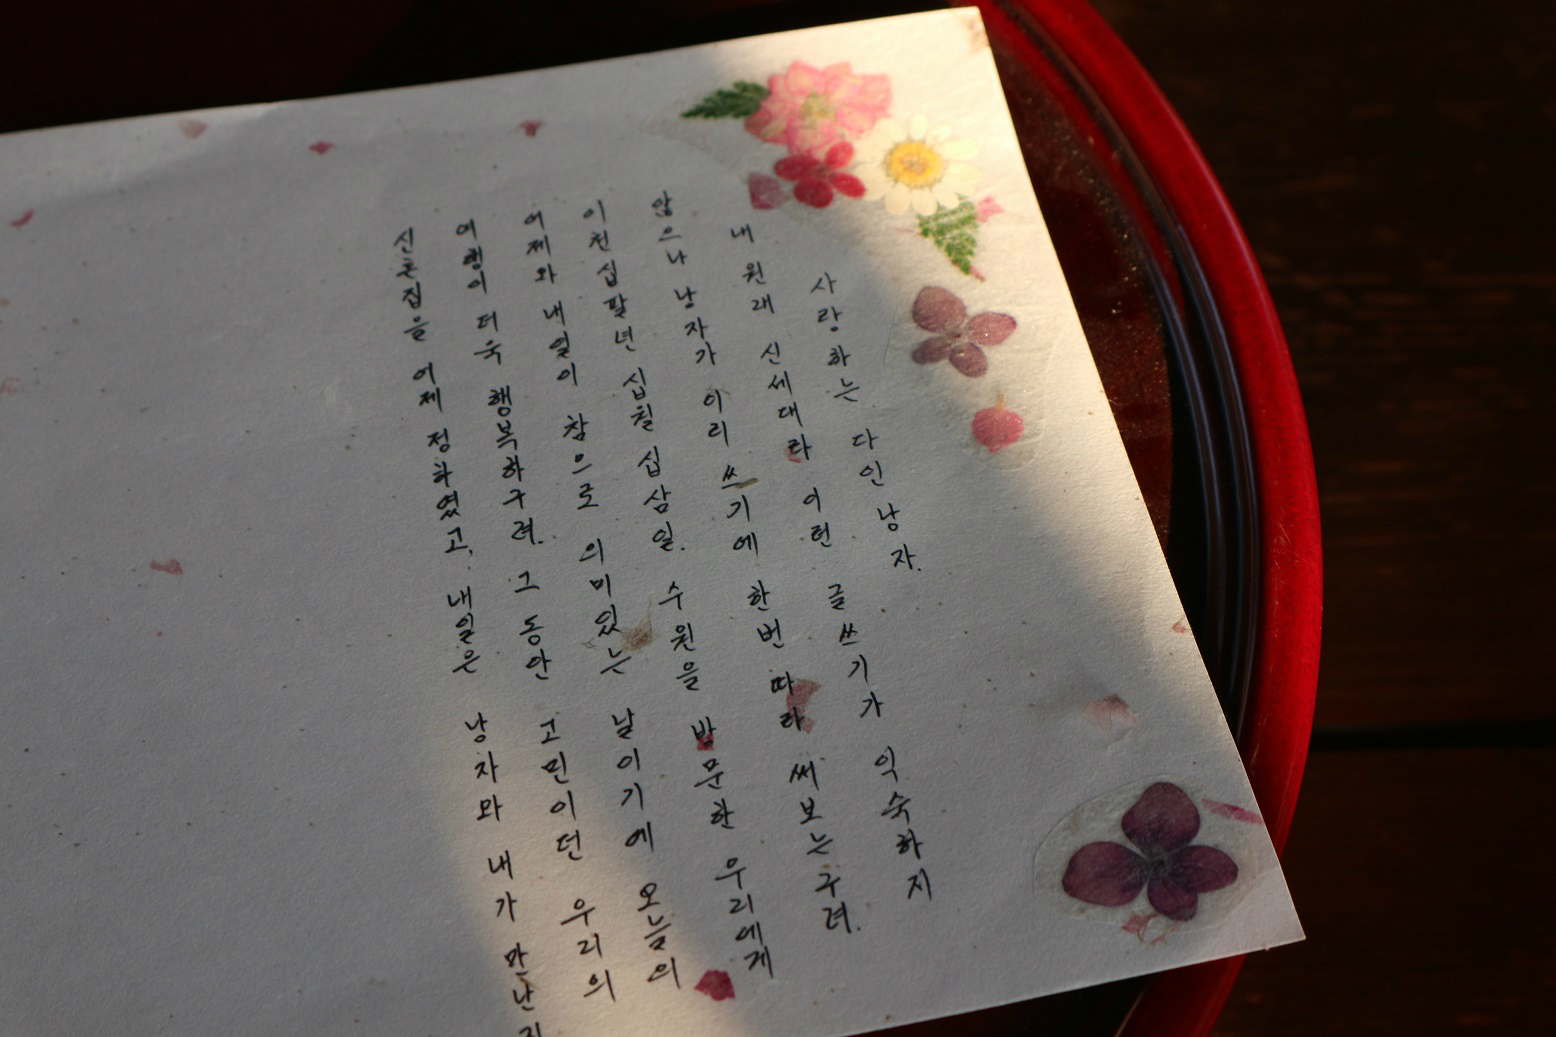 사랑하는 다인낭자.
내 원래 신세대라 이런 글쓰기가 익숙하지
않으나 낭자가 이리 쓰기에 한번 따라 써보는구려.
이천십팔년 십칠 십삼일. 수원을 방문한 우리에게
어제와 내일이 참으로 의미있는 날이기에 오늘의
여행이 더욱 행복하구려. 그 동안 고민이던 우리의
신혼집을 어제 정하였고, 내일은 낭자와 내가 만난지